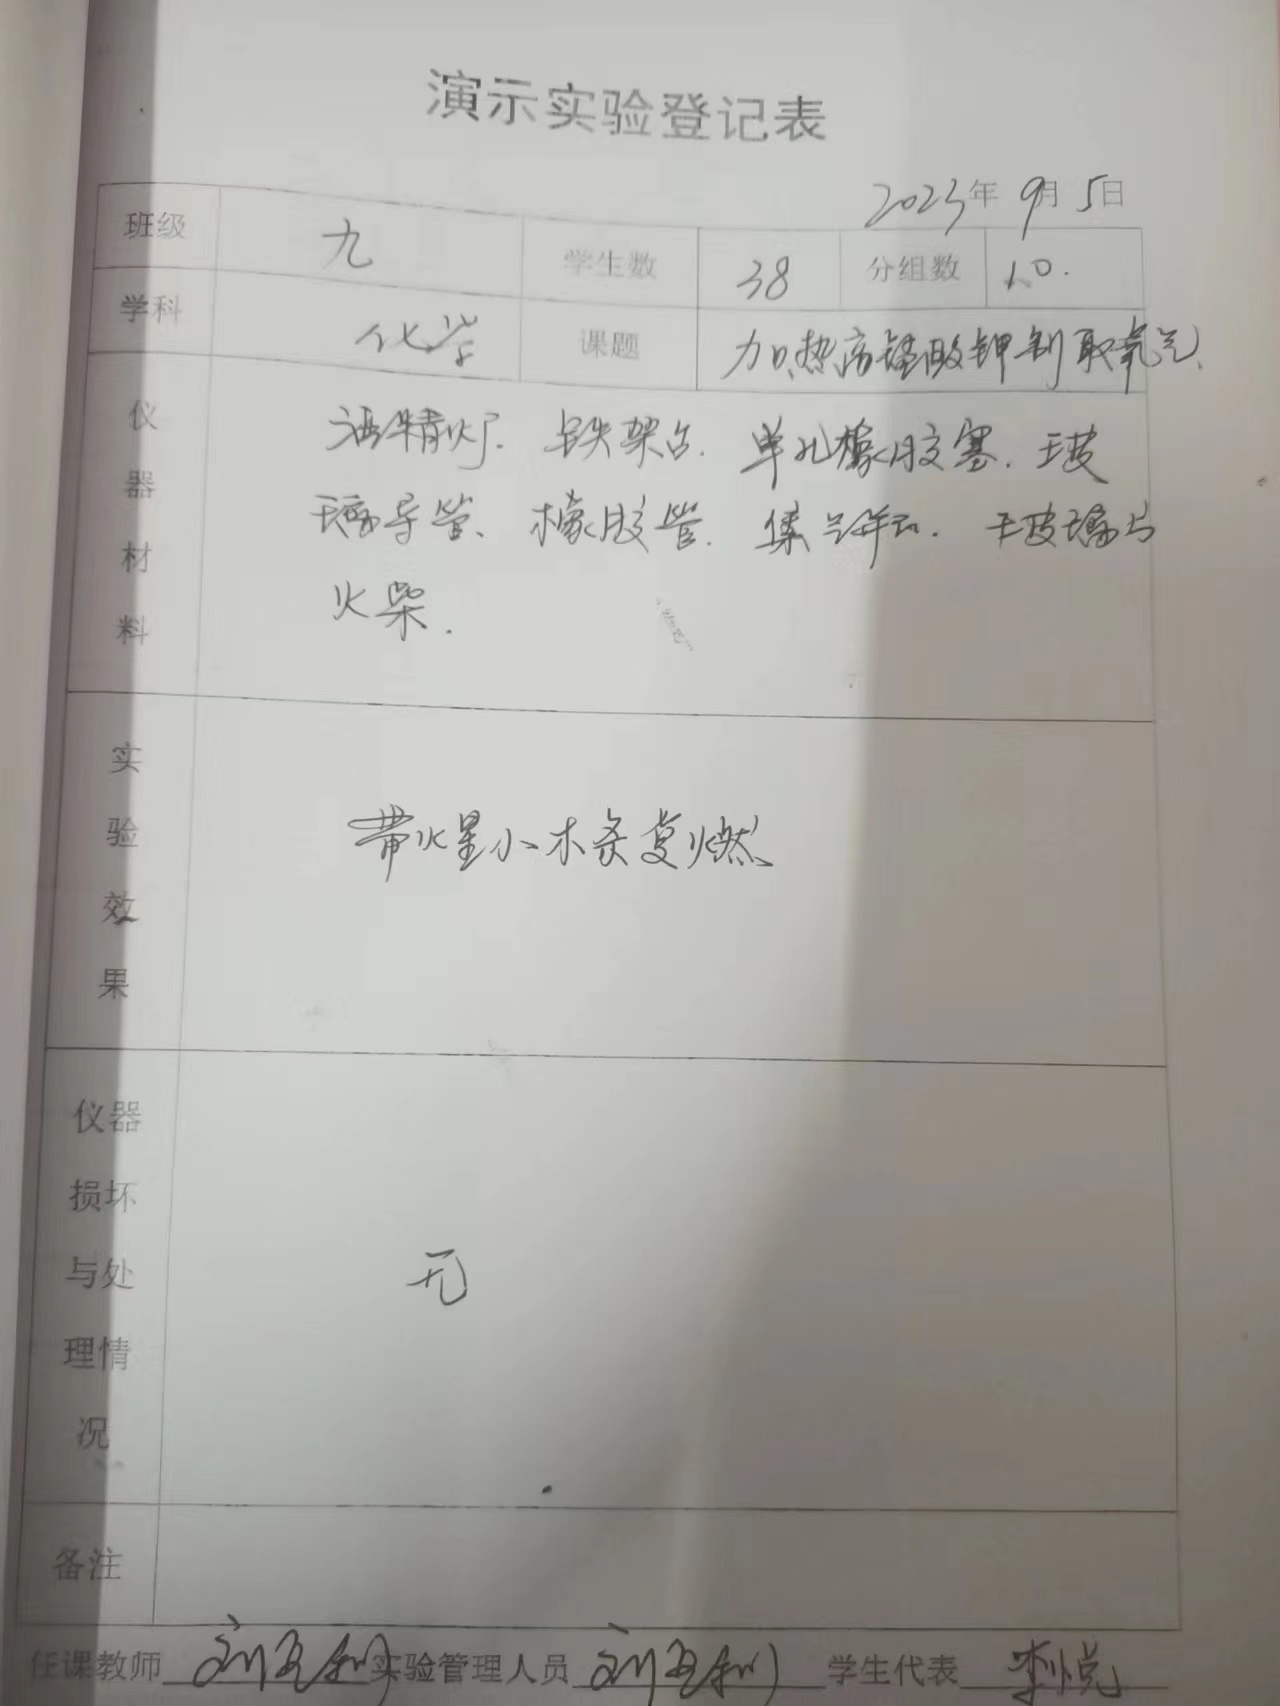 演示实验登记表
2023年 9月 5日
班级 九 学生数 38 分组数 10.
学科 化学 课题 加热高锰酸钾制取氧气、
仪器材料 酒精灯. 铁架台. 单孔橡胶塞. 玻
璃导管、橡胶管. 集气瓶. 玻璃片
火柴.
实验效果 带火星小木条复燃、
仪器损坏与处理情况 无
备注
任课教师 实验管理人员 学生代表 李悦